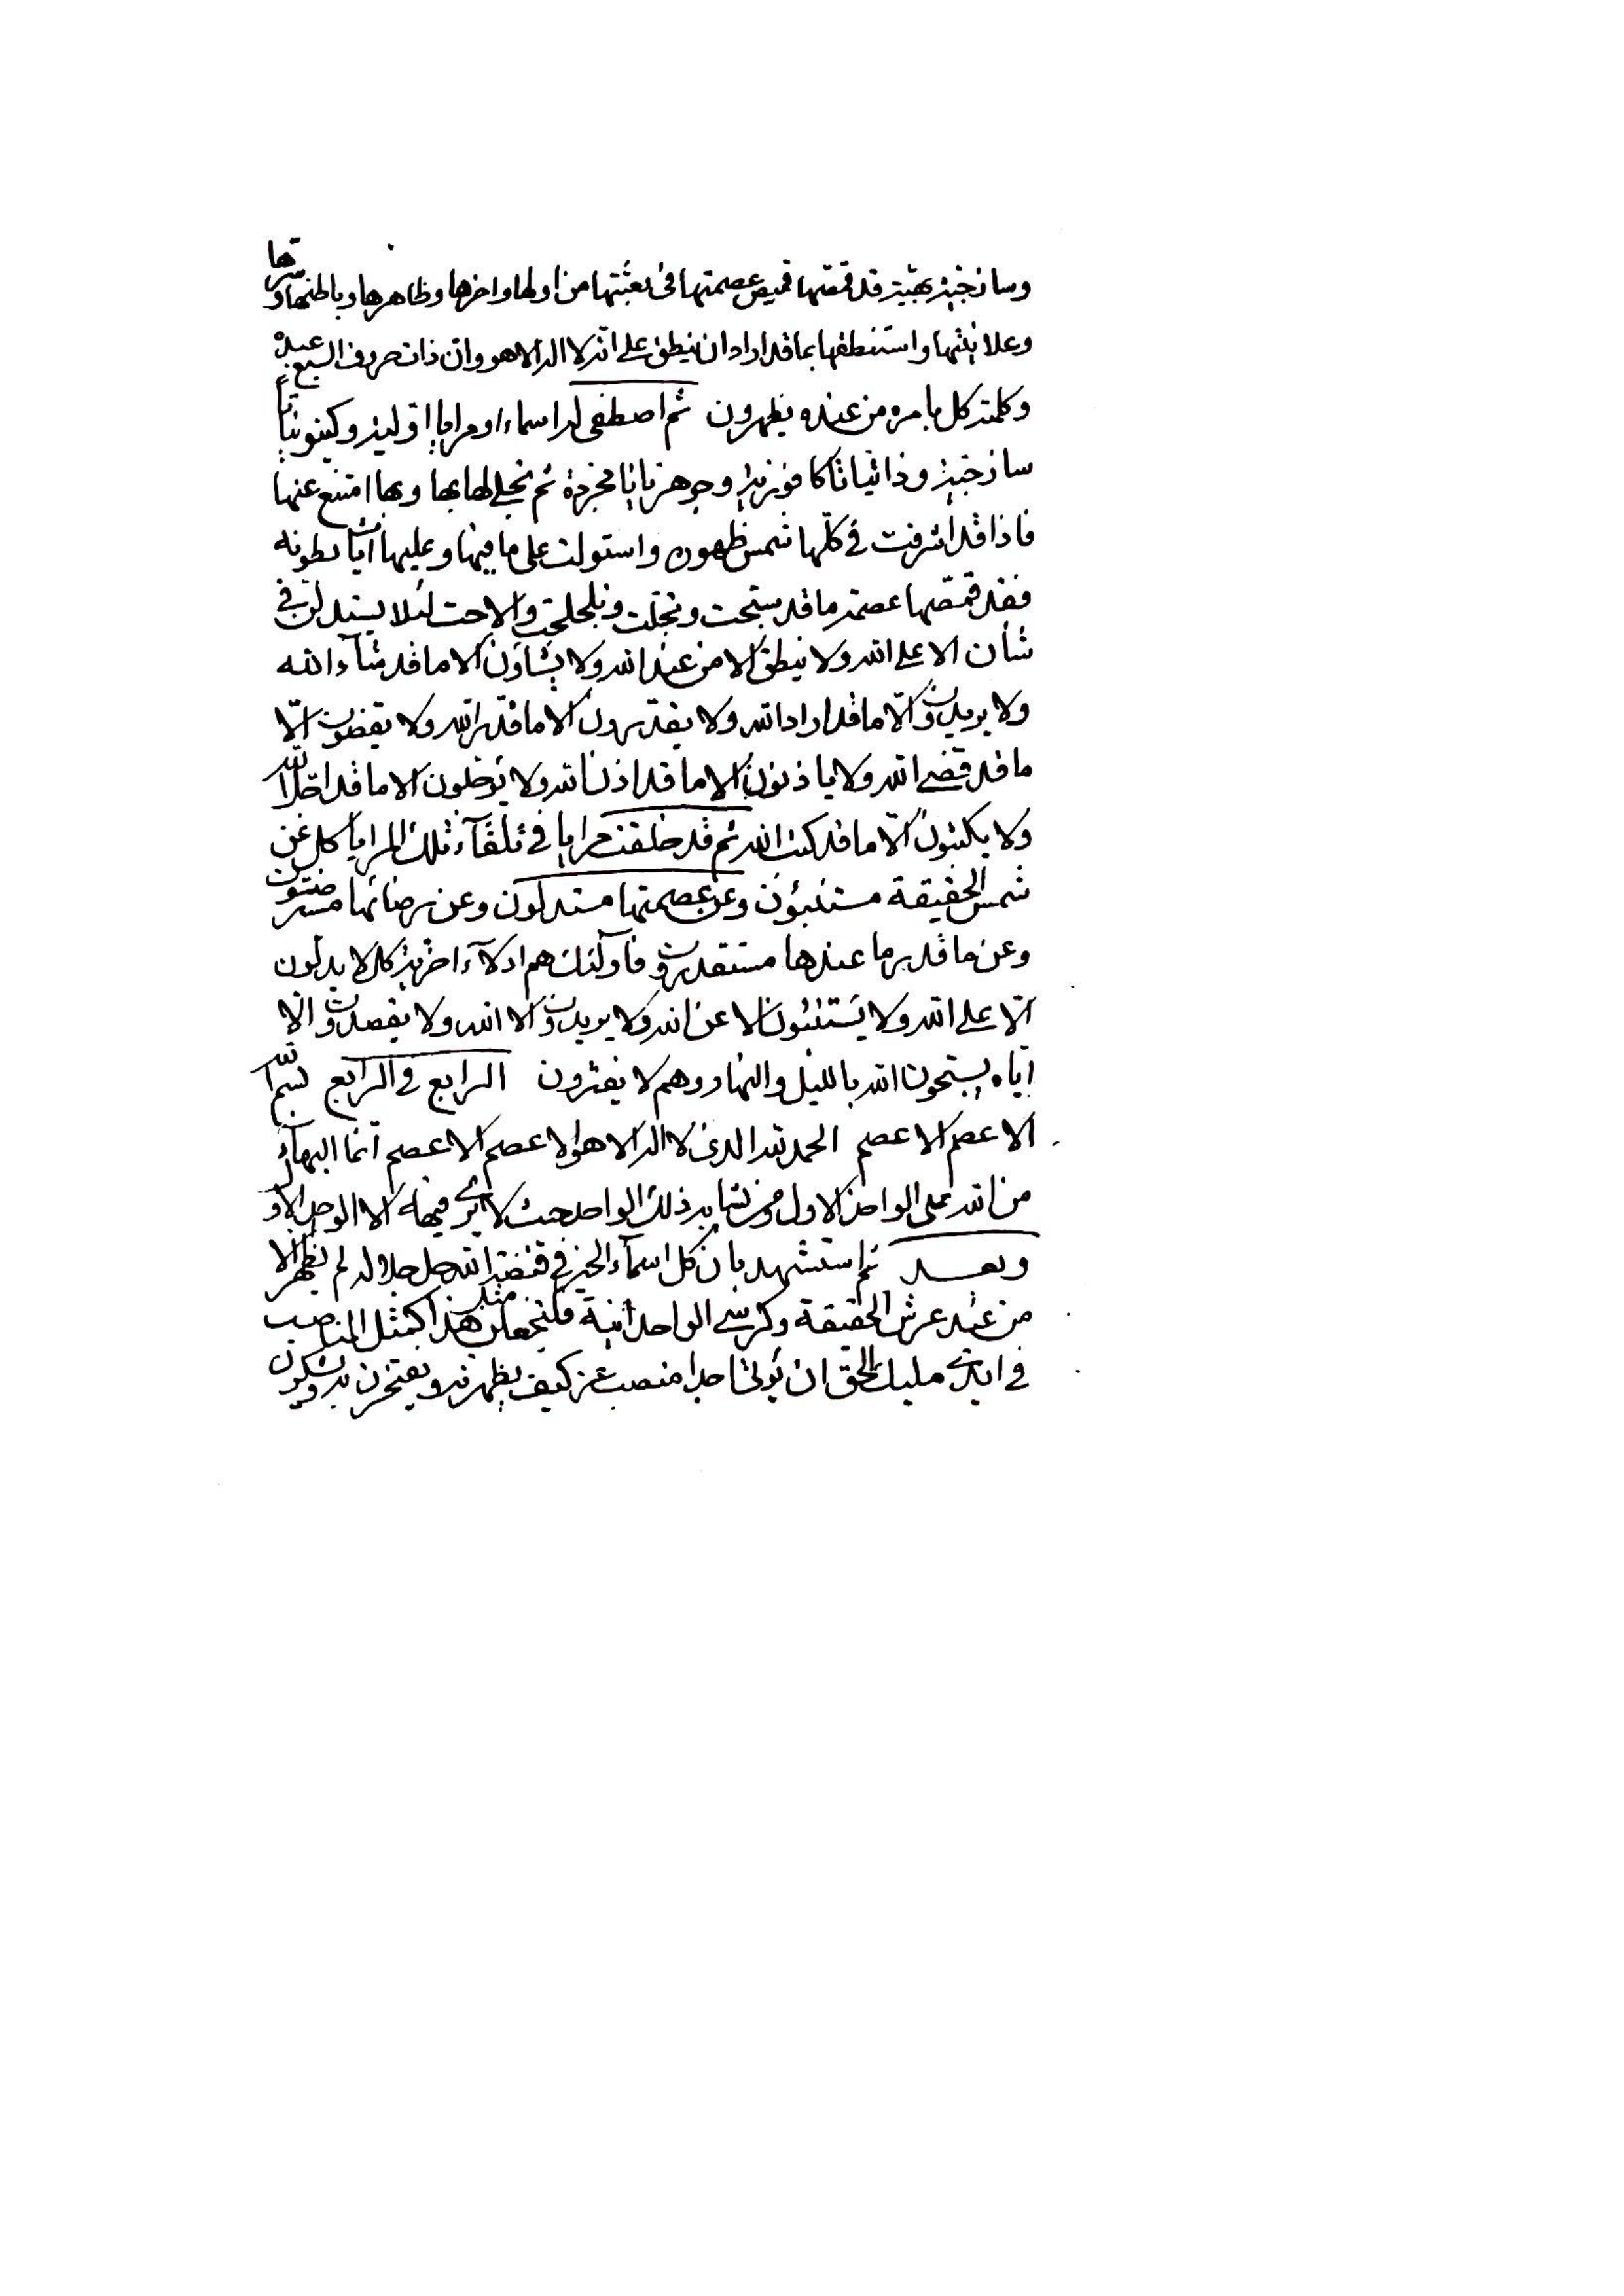 وساذجية بهيّة قد قمّصها قميص عصمتها في بعثتها من اولها واخرها وظاهرها وباطنها وسرّها
وعلانيتها واستنطقها بما قد اراد ان ينطق على انه لا اله الا هو وان ذات حروف السبع عبده
وكلمته كل بامره من عنده يظهرون ثم اصطفى له اسماء او مرايا اوّلية وكينونيات
ساذجية وذاتيات كافورية وجوهريات مجردة ثم تجلى لها بها وبها امتنع عنها
فاذا قد اشرقت في كلّها شمس ظهوره واستولت على ما فيها وعليها ايات بطونه
فقد قمّصها عصمته ما قد سبّحت وتجلّت وتلجلجت والاحت لئلا يستدلن في
شأن الا على الله ولا ينطق الا من عند الله ولا يشاؤن الا ما قد شآء الله
ولا يريدون الّا ما قد اراد الله ولا يقدّرون الا ما قدّر الله ولا يقضون الّا
ما قد قضى الله ولا ياذنون الا ما قد اذن الله ولا يؤجلون الا ما قد اجّل الله
ولا يكتبون الّا ما قد كتب الله ثم قد خلقت مرايا في تلقآء تلك المرايا كل عن
شمس الحقيقة مستنبؤن وعن عصمتها مستدلون وعن رضائها مسترضئون
وعن ما قدّر ما عندها مستقدرون فاولئك هم ادلآء اخرية كل لا يدلون
الّا على الله ولا يستنبئون الا عن الله ولا يريدون الا الله ولا يقصدون الا
ايّاه يسبّحون الله بالليل والنهار وهم لا يفترون الرابع في الرابع بسم الله
الاعصم الاعصم الحمد لله الذي لا اله الا هو الاعصم الاعصم انما البهآء
من الله على الواحد الاول ومن يشابه ذلك الواحد حيث لا يرى فيه الا الواحد الاول
وبعـد ثم استشهد بان كل اسمآء الخير في قبضة الله جل جلاله لم يظهر الا
من عند عرش الحقيقة وكرسي الواحدانية فلتجعلن مثل هذا كمثل المناصب
في ايدي مليك الحق ان يؤتى احدا منصب عز كيف يظهرنه ويفتخرن به ويشكرن